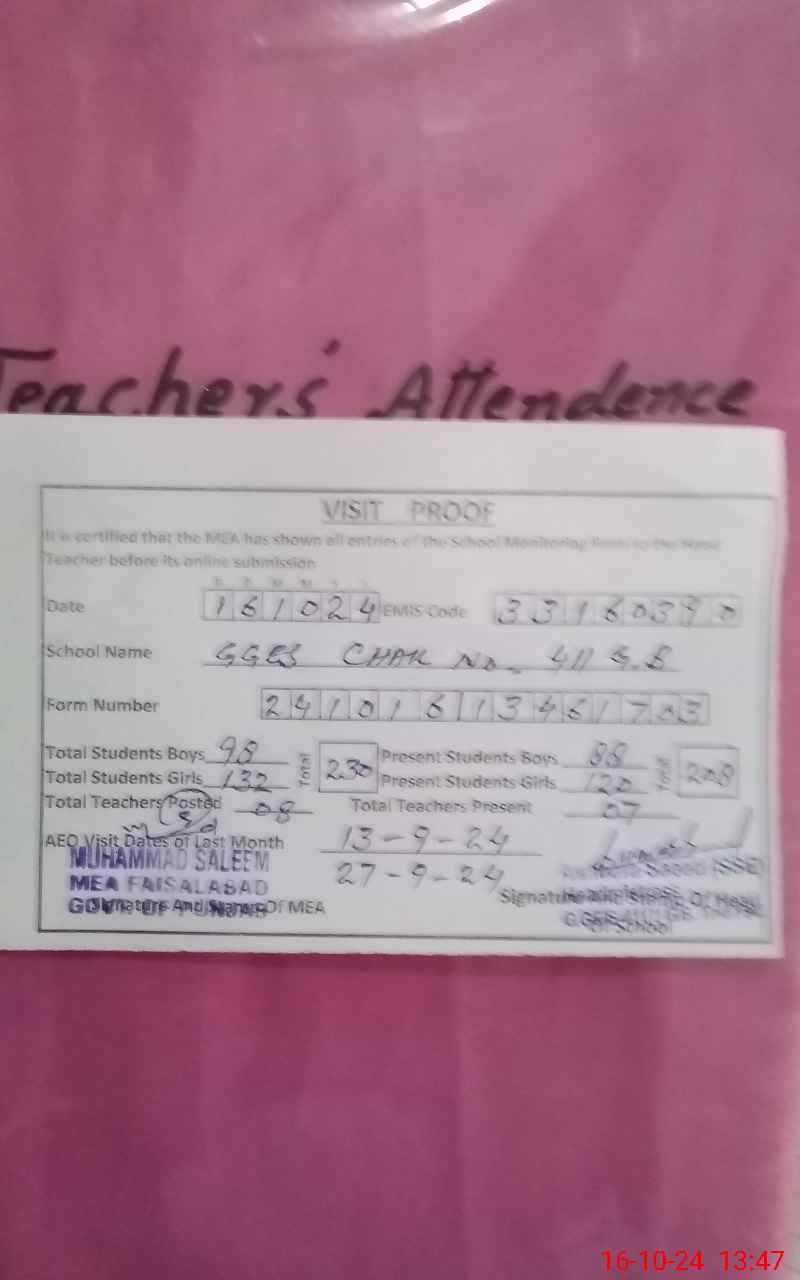 Teachers' Attendence
VISIT PROOF
It is certified that the MEA has shown all entries of the School Monitoring Form to the Head
Teacher before its online submission
Date 161024 EMIS Code 33160390
School Name GGES CHAK NO. 411 G.B
Form Number 24101613461703
Total Students Boys 98 Total 230 Present Students Boys 88 Total 208
Total Students Girls 132 Present Students Girls 120
Total Teachers Posted 08 Total Teachers Present 07
AEO Visit Dates of Last Month 13-9-24
27-9-24
MUHAMMAD SALEEM
MEA FAISALABAD
GOVT. OF PUNJAB
Signature And Stamp Of MEA
Saeed (SSE)
Signature And Stamp Of Head
Of School
16-10-24 13:47